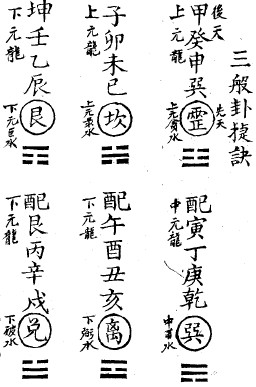 三般卦捷訣
後天
甲癸申巽
上元龍
先天
上元貪水
子卯未巳坎
上元龍
坤壬乙辰艮
下元龍
下元巨水
配寅丁庚乾巽
中元龍
配午酉丑亥离
下元龍
下弼水
配艮丙辛戌兌
下元龍
下破水